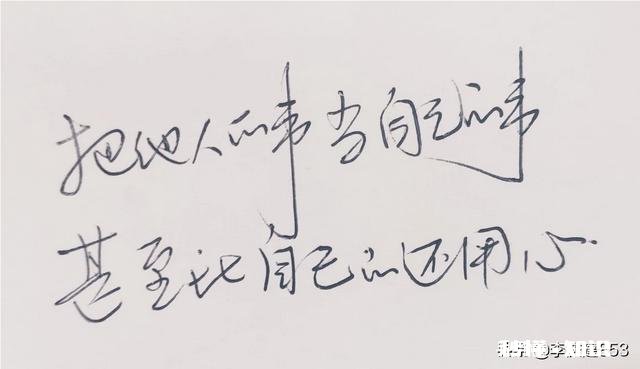 把他人的事当自己的事
甚至比自己的还用心.